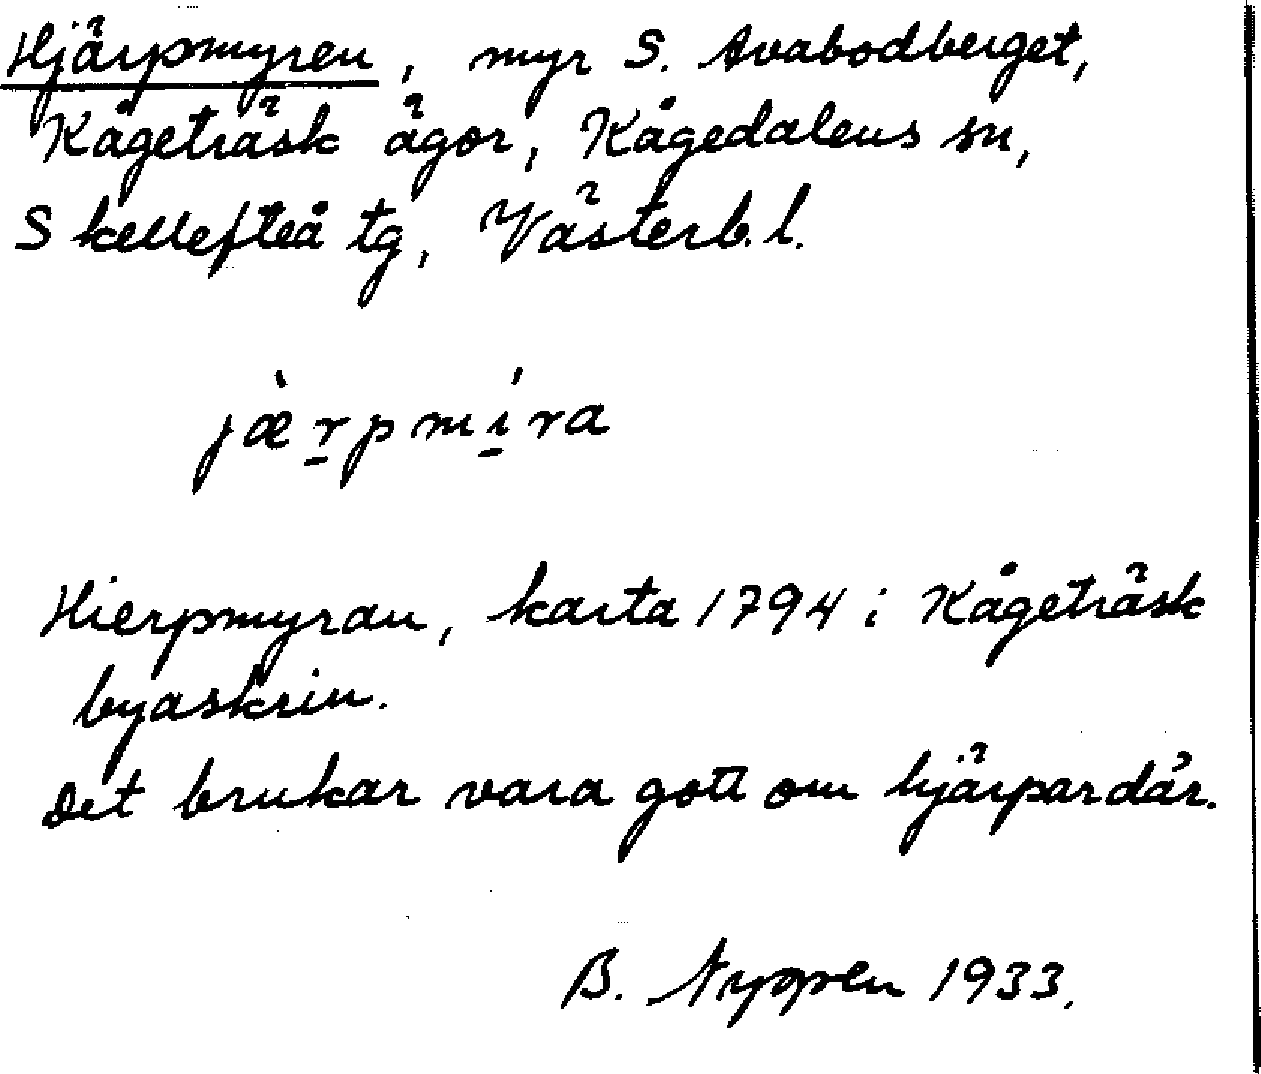 Hjärpmyren, myr S. Avabodberget,
Kågeträsk ägor, Kågedalens sn,
Skellefteå tg, Västerb. l.
jæ̀r̲pmí̲ra
Hierpmyran, karta 1794 i Kågeträsk
byaskrin.
Det brukar vara gott om hjärpar där.
B. Nygren 1933.